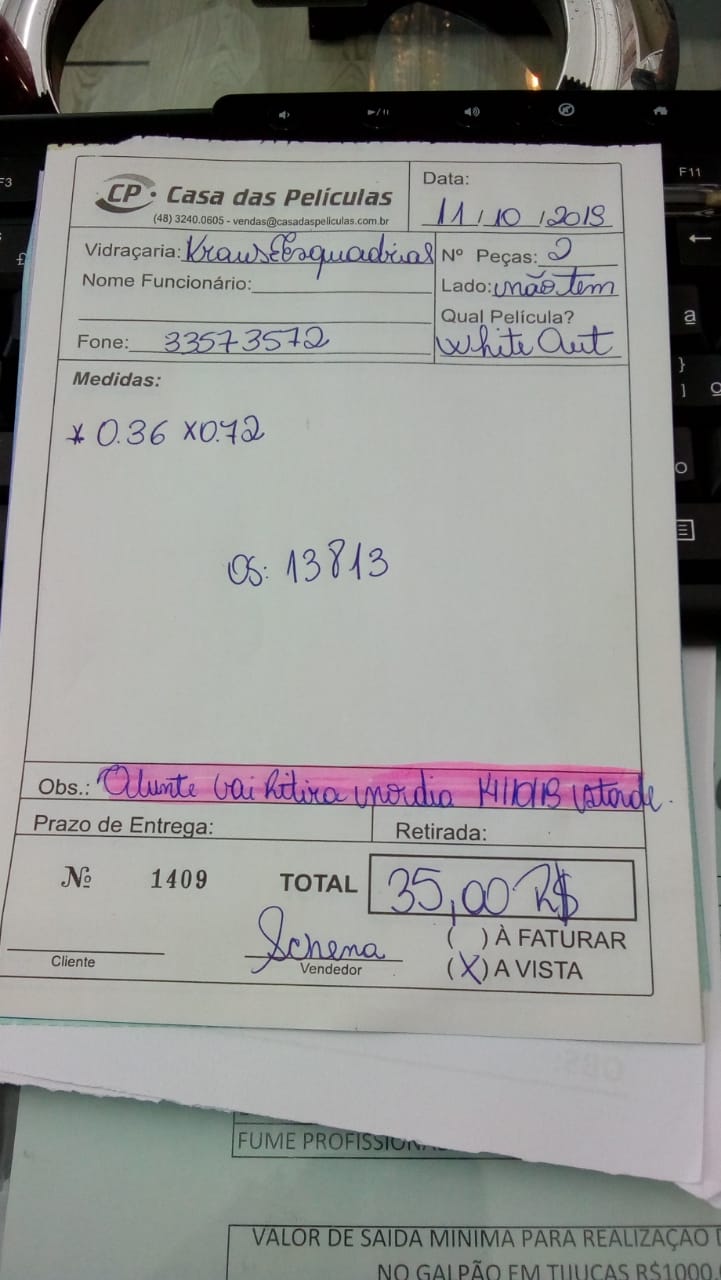 CP. Casa das Películas
(48) 3240.0605 - vendas@casadaspeliculas.com.br
Data:
11/10/2019
Vidraçaria: Kraus Esquadrias
Nº Peças: 2
Nome Funcionário:
Lado: não tem
Qual Película?
White Out
Fone: 33573572
Medidas:
* 0.36 x 0.72
OS: 13813
Obs.: vai dia
Prazo de Entrega:
Retirada:
Nº 1409
TOTAL 35,00 R$
( ) À FATURAR
Cliente
Schena
Vendedor
(X) A VISTA
FUME
VALOR DE SAIDA MINIMA PARA REALIZAÇÃO
NO GALPÃO EM TIJUCAS R$1000
F3
F11
£
a
}
]